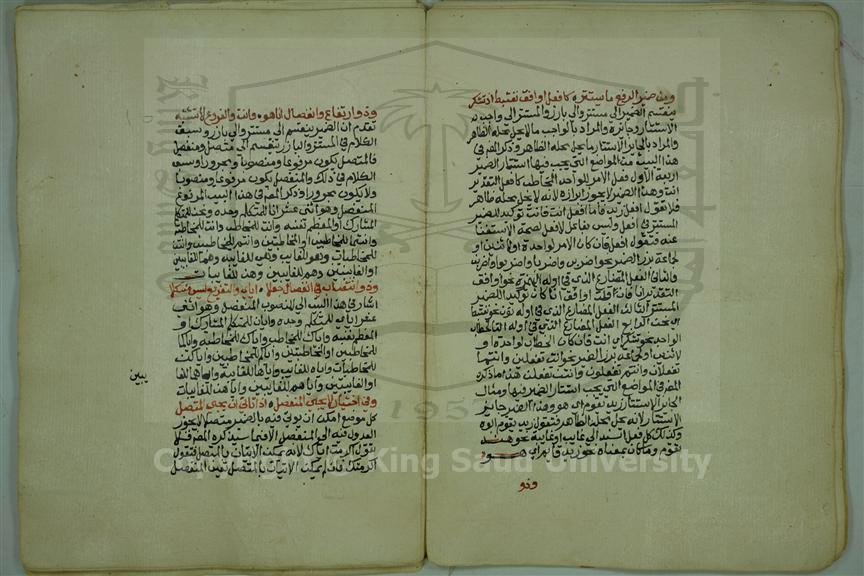 ومن ضمير الرفع ما يستتر * كافعل اوافق نغتبط اذ تشكر
ينقسم الضمير الى مستتر والى بارز والمستتر الى واجب
الاستتار وجائزه والمراد بالواجب ما لا يحل محله الظاهر
والمراد بالجائز الاستتار ما يحل محله الظاهر وذكر المص في
هذا البيت من المواضع التي يجب فيها استتار الضمير
اربعة الاول فعل الامر للواحد المخاطب كافعل التقدير
انت وهذا الضمير لا يجوز ابرازه لانه لا يحل محله ظاهر
فلا تقول افعل زيد فاما افعل انت فانت توكيد للضمير
المستتر في افعل وليس بفاعل لافعل لصحة الاستغنا
عنه فتقول افعل فان كان الامر لواحدة او لاثنين او
لجماعة برز الضمير نحو اضربي واضربا واضربوا واضربن
والثاني الفعل المضارع الذي في اوله الهمزة نحو اوافق
التقدير انا فان قلت اوافق انا كان توكيد للضمير
المستتر الثالث الفعل المضارع الذي في اوله نون نحو نغتبط
اي نحن الرابع الفعل المضارع الذي في اوله التا لخطاب
الواحد نحو تشكر اي انت فان كان الخطاب لواحدة او
لاثنين او لجماعة برز الضمير نحو انت تفعلين وانتما
تفعلان وانتم تفعلون وانتن تفعلن هذا ما ذكره
المص في المواضع التي يجب استتار الضمير فيها ومثال
الجائز الاستتار زيد يقوم اي هو وهذا الضمير جائز
الاستتار لانه يحل محله الظاهر فتقول زيد يقوم ابوه
وكذلك كل فعل اسند الى غايب او غايبة نحو هند
تقوم وما كان بمعناه نحو زيد قايم اي هو
وذو
وذو ارتفاع وانفصال انا هو * وانت والفروع لا تشتبه
تقدم ان الضمير ينقسم الى مستتر والى بارز وسبق
الكلام في المستتر والبارز ينقسم الى متصل ومنفصل
فالمتصل يكون مرفوعا ومنصوبا ومجرورا وسبق
الكلام في ذلك والمنفصل يكون مرفوعا ومنصوبا
ولا يكون مجرورا وذكر المص في هذا البيت المرفوع
المنفصل وهو اثنى عشر انا للمتكلم وحده ونحن للمتكلم
المشارك او المعظم نفسه وانت للمخاطب وانت للمخاطبة
وانتما للمخاطبين او المخاطبتين وانتم للمخاطبين وانتن
للمخاطبات وهو للغايب وهي للغايبة وهما للغايبين
او الغايبتين وهم للغايبين وهن للغايبات
وذو انتصاب في انفصال جعلا * اياي والتفريع ليس مشكلا
اشار في هذا البيت الى المنصوب المنفصل وهو اثنى
عشر اياي للمتكلم وحده وايانا للمتكلم المشارك او
المعظم نفسه واياك للمخاطب واياك للمخاطبة واياكما
للمخاطبين او المخاطبتين واياكم للمخاطبين واياكن
للمخاطبات واياه للغايب واياها للغايبة واياهما للغايبين
او الغايبتين واياهم للغايبين واياهن للغايبات
وفي اختيار لا يجي المنفصل * اذا تاتى ان يجي المتصل
كل موضع امكن ان يوتى فيه بالضمير متصلا لا يجوز
العدول فيه الى المنفصل الا فيما سيذكره المص فلا
تقول اكرمت اياك لانه يمكن الاتيان بالمتصل فتقول
اكرمتك فان لم يمكن الاتيان بالمتصل تعين المنفصل
يبين
Copyright © King Saud University
1957